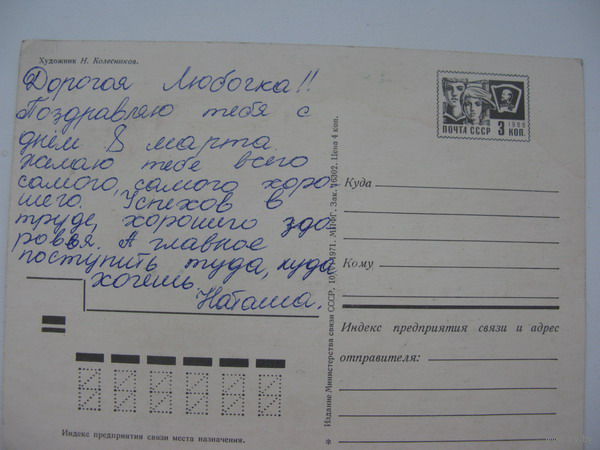 Художник Н. Колесников.
Дорогая Любочка!!
Поздравляю тебя с
днём 8 марта.
Желаю тебе всего
самого, самого хоро
шего. Успехов в
труде, хорошего здо
ровья. А главное
поступить туда, куда
хочешь.
Наташа.
Индекс предприятия связи места назначения.
Издание Министерства связи СССР.
Цена 4 коп.
ПОЧТА СССР 3 КОП.
1966
Куда
Кому
Индекс предприятия связи и адрес
отправителя:
*